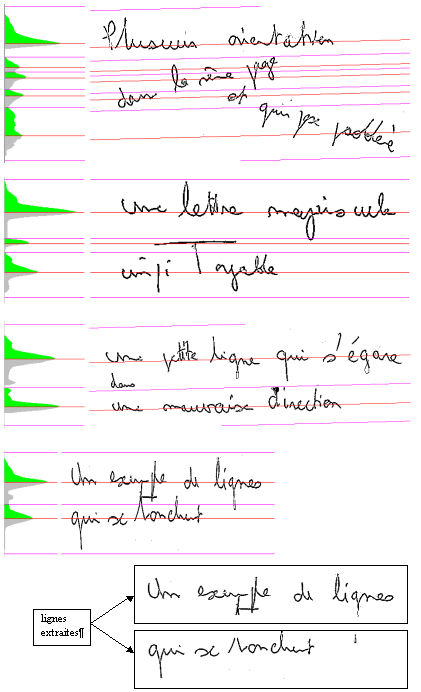 Plusieurs orientation
dans la même page
et
qui pose problème
une lettre majuscule
impitoyable
une petite ligne qui s'égare
dans
une mauvaise direction
Un exemple de lignes
qui se touchent
lignes
extraites¶
Un exemple de lignes
qui se touchent